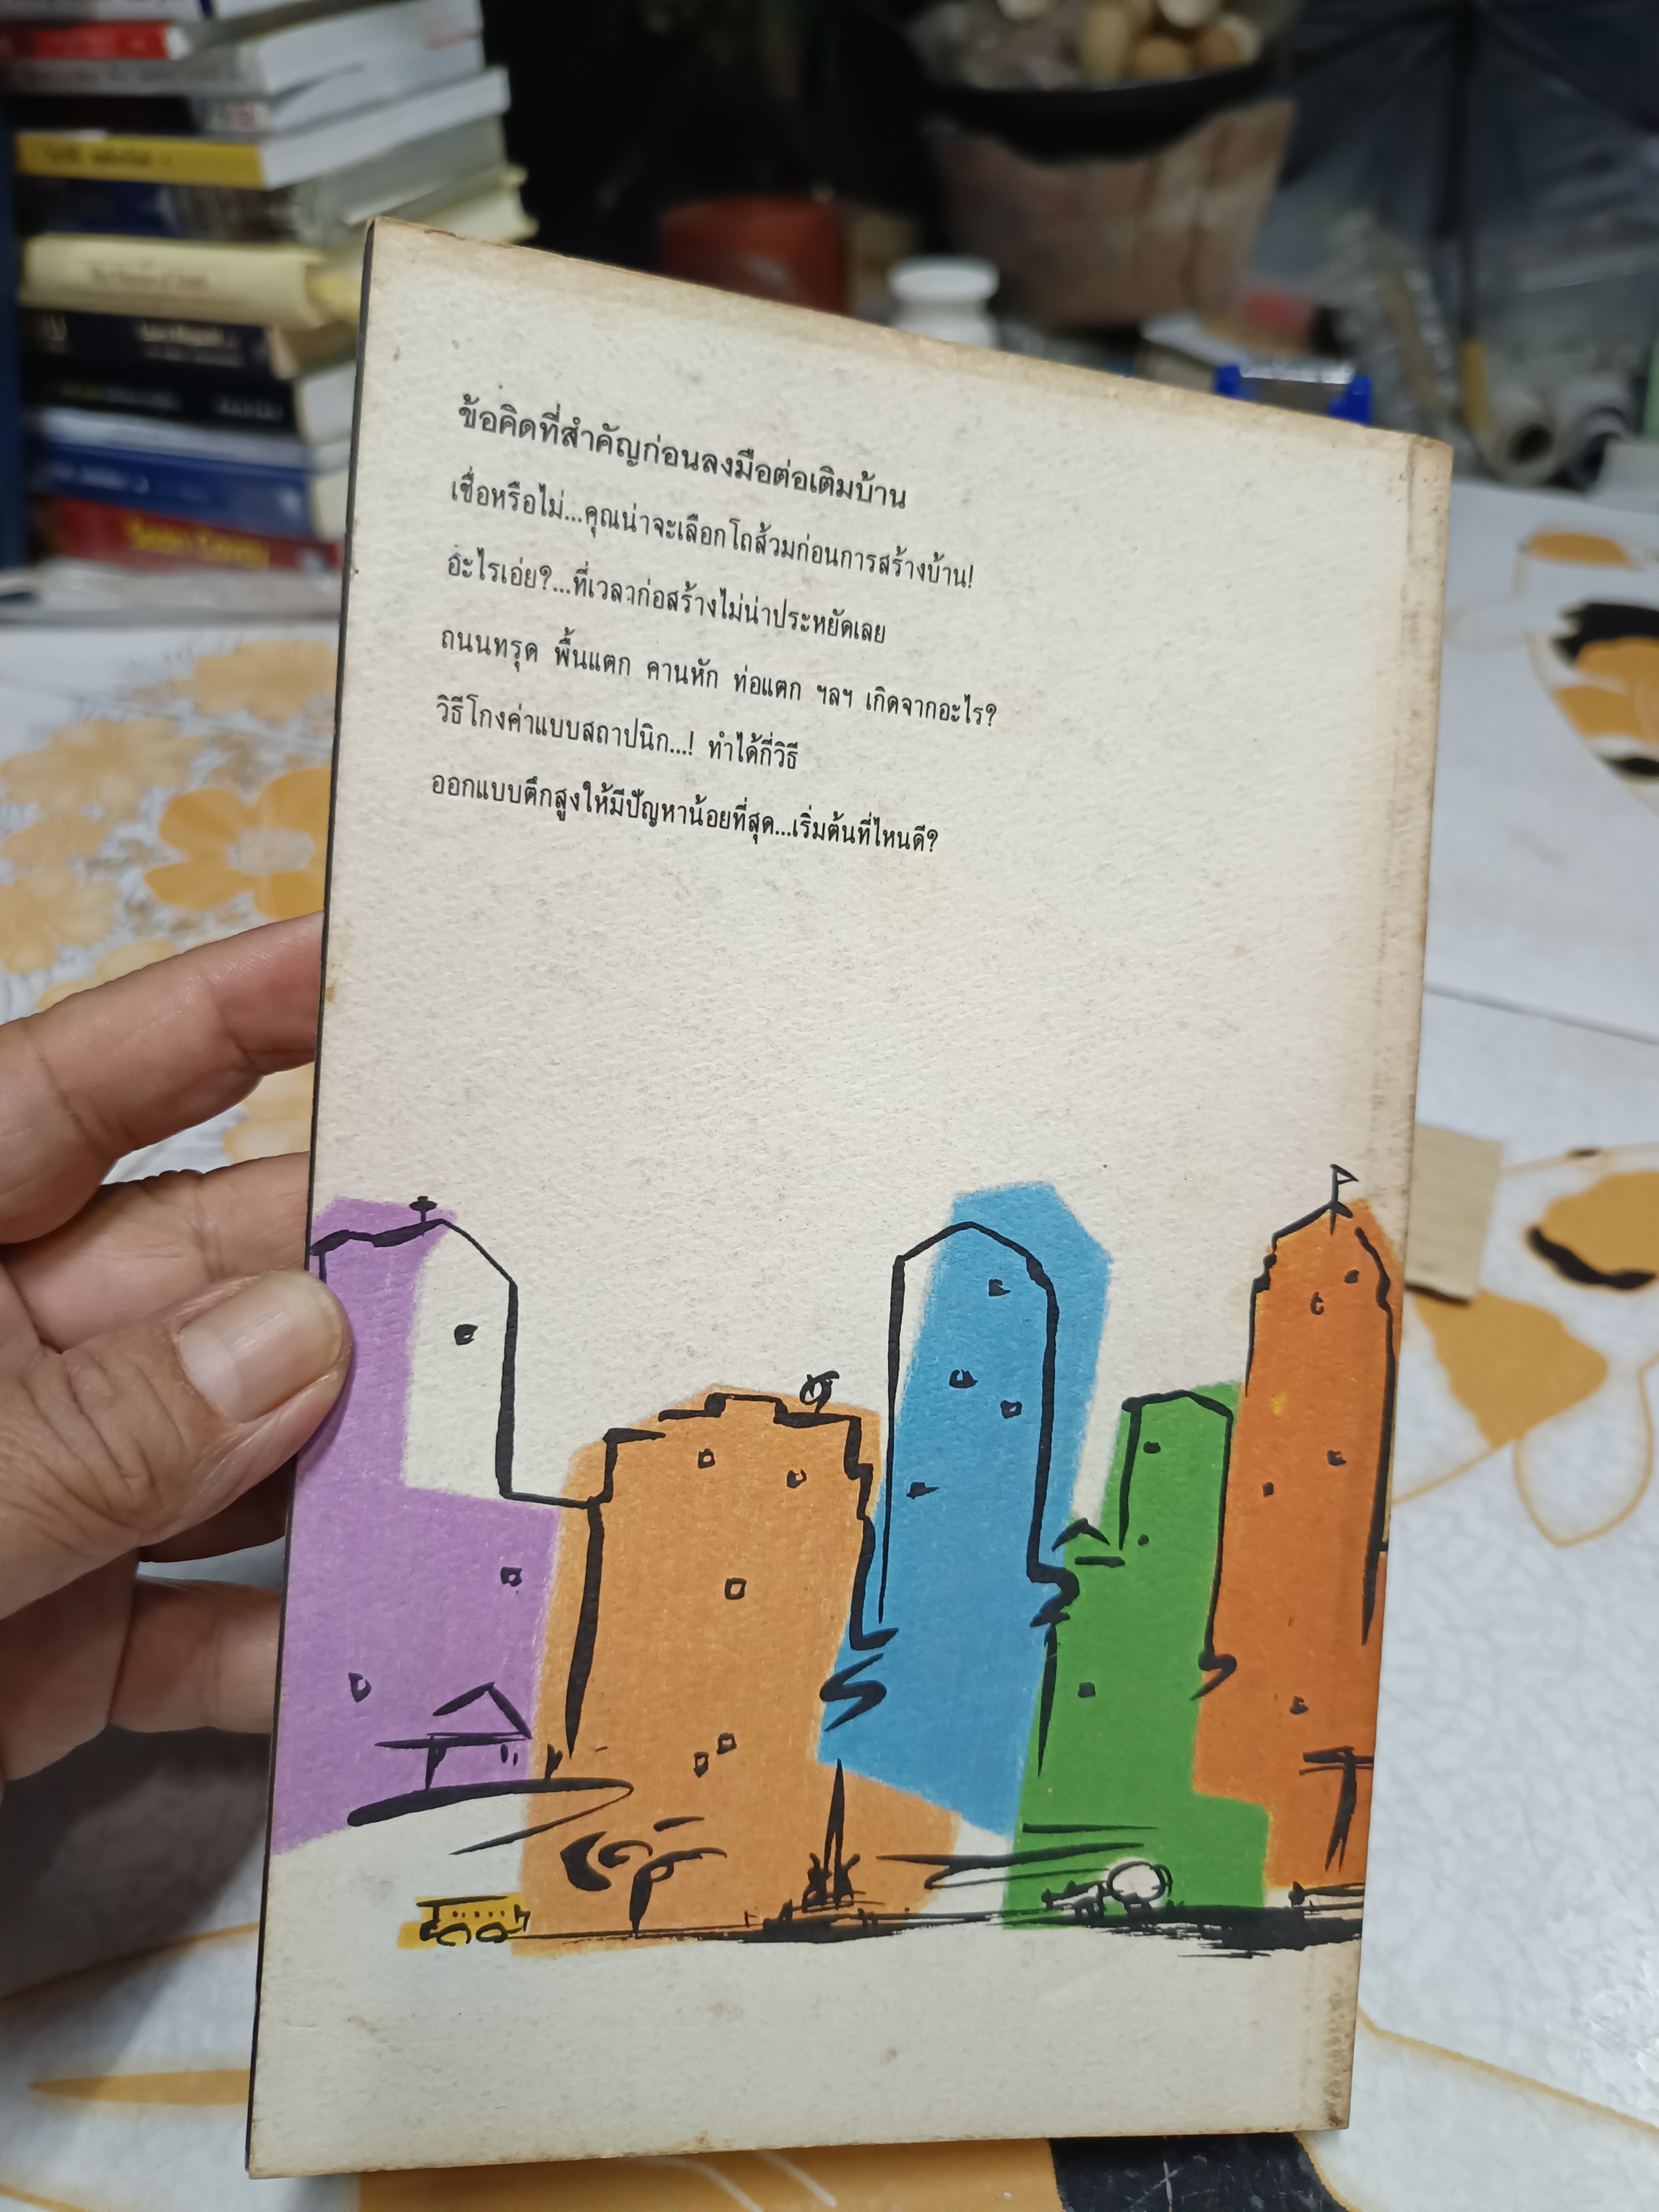 ข้อคิดที่สำคัญก่อนลงมือต่อเติมบ้าน
เชื่อหรือไม่...คุณน่าจะเลือกโถส้วมก่อนการสร้างบ้าน!
อะไรเอ่ย?...ที่เวลาก่อสร้างไม่น่าประหยัดเลย
ถนนทรุด พื้นแตก คานหัก ท่อแตก ฯลฯ เกิดจากอะไร?
วิธีโกงค่าแบบสถาปนิก...! ทำได้กี่วิธี
ออกแบบตึกสูงให้มีปัญหาน้อยที่สุด...เริ่มต้นที่ไหนดี?